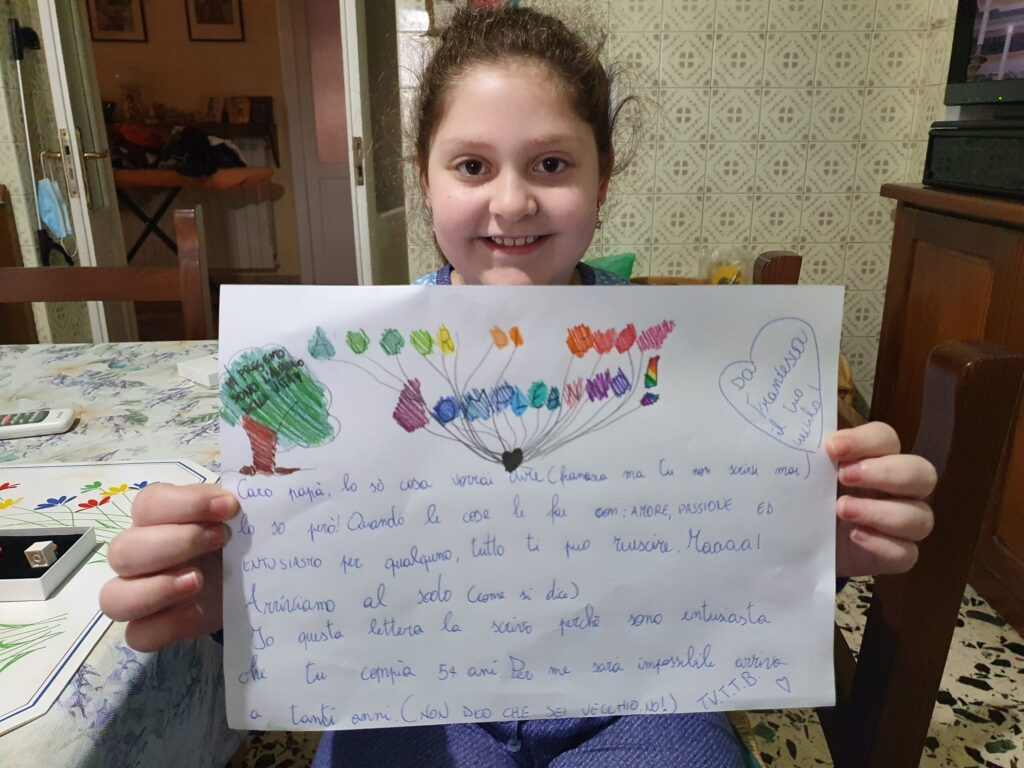 COMPLEANNO!
Da
Francesca
il tuo
incubo!
Caro papà, lo sò cosa vorrai dire (francesca ma tu non scrivi mai)
lo so però! Quando le cose le fai con: AMORE, PASSIOLE ED
ENTUSIASMO per qualquno, tutto ti può riuscire. Maaaa!
Arriviamo al sodo (come si dice)
Io questa lettera la scrivo perchè sono entusiasta
che tu compia 54 ani Per me sarà impossibile arrivare
a tanti anni. (NON DICO CHE SEI VECCHIO, NO!) T.V.T.T.B.